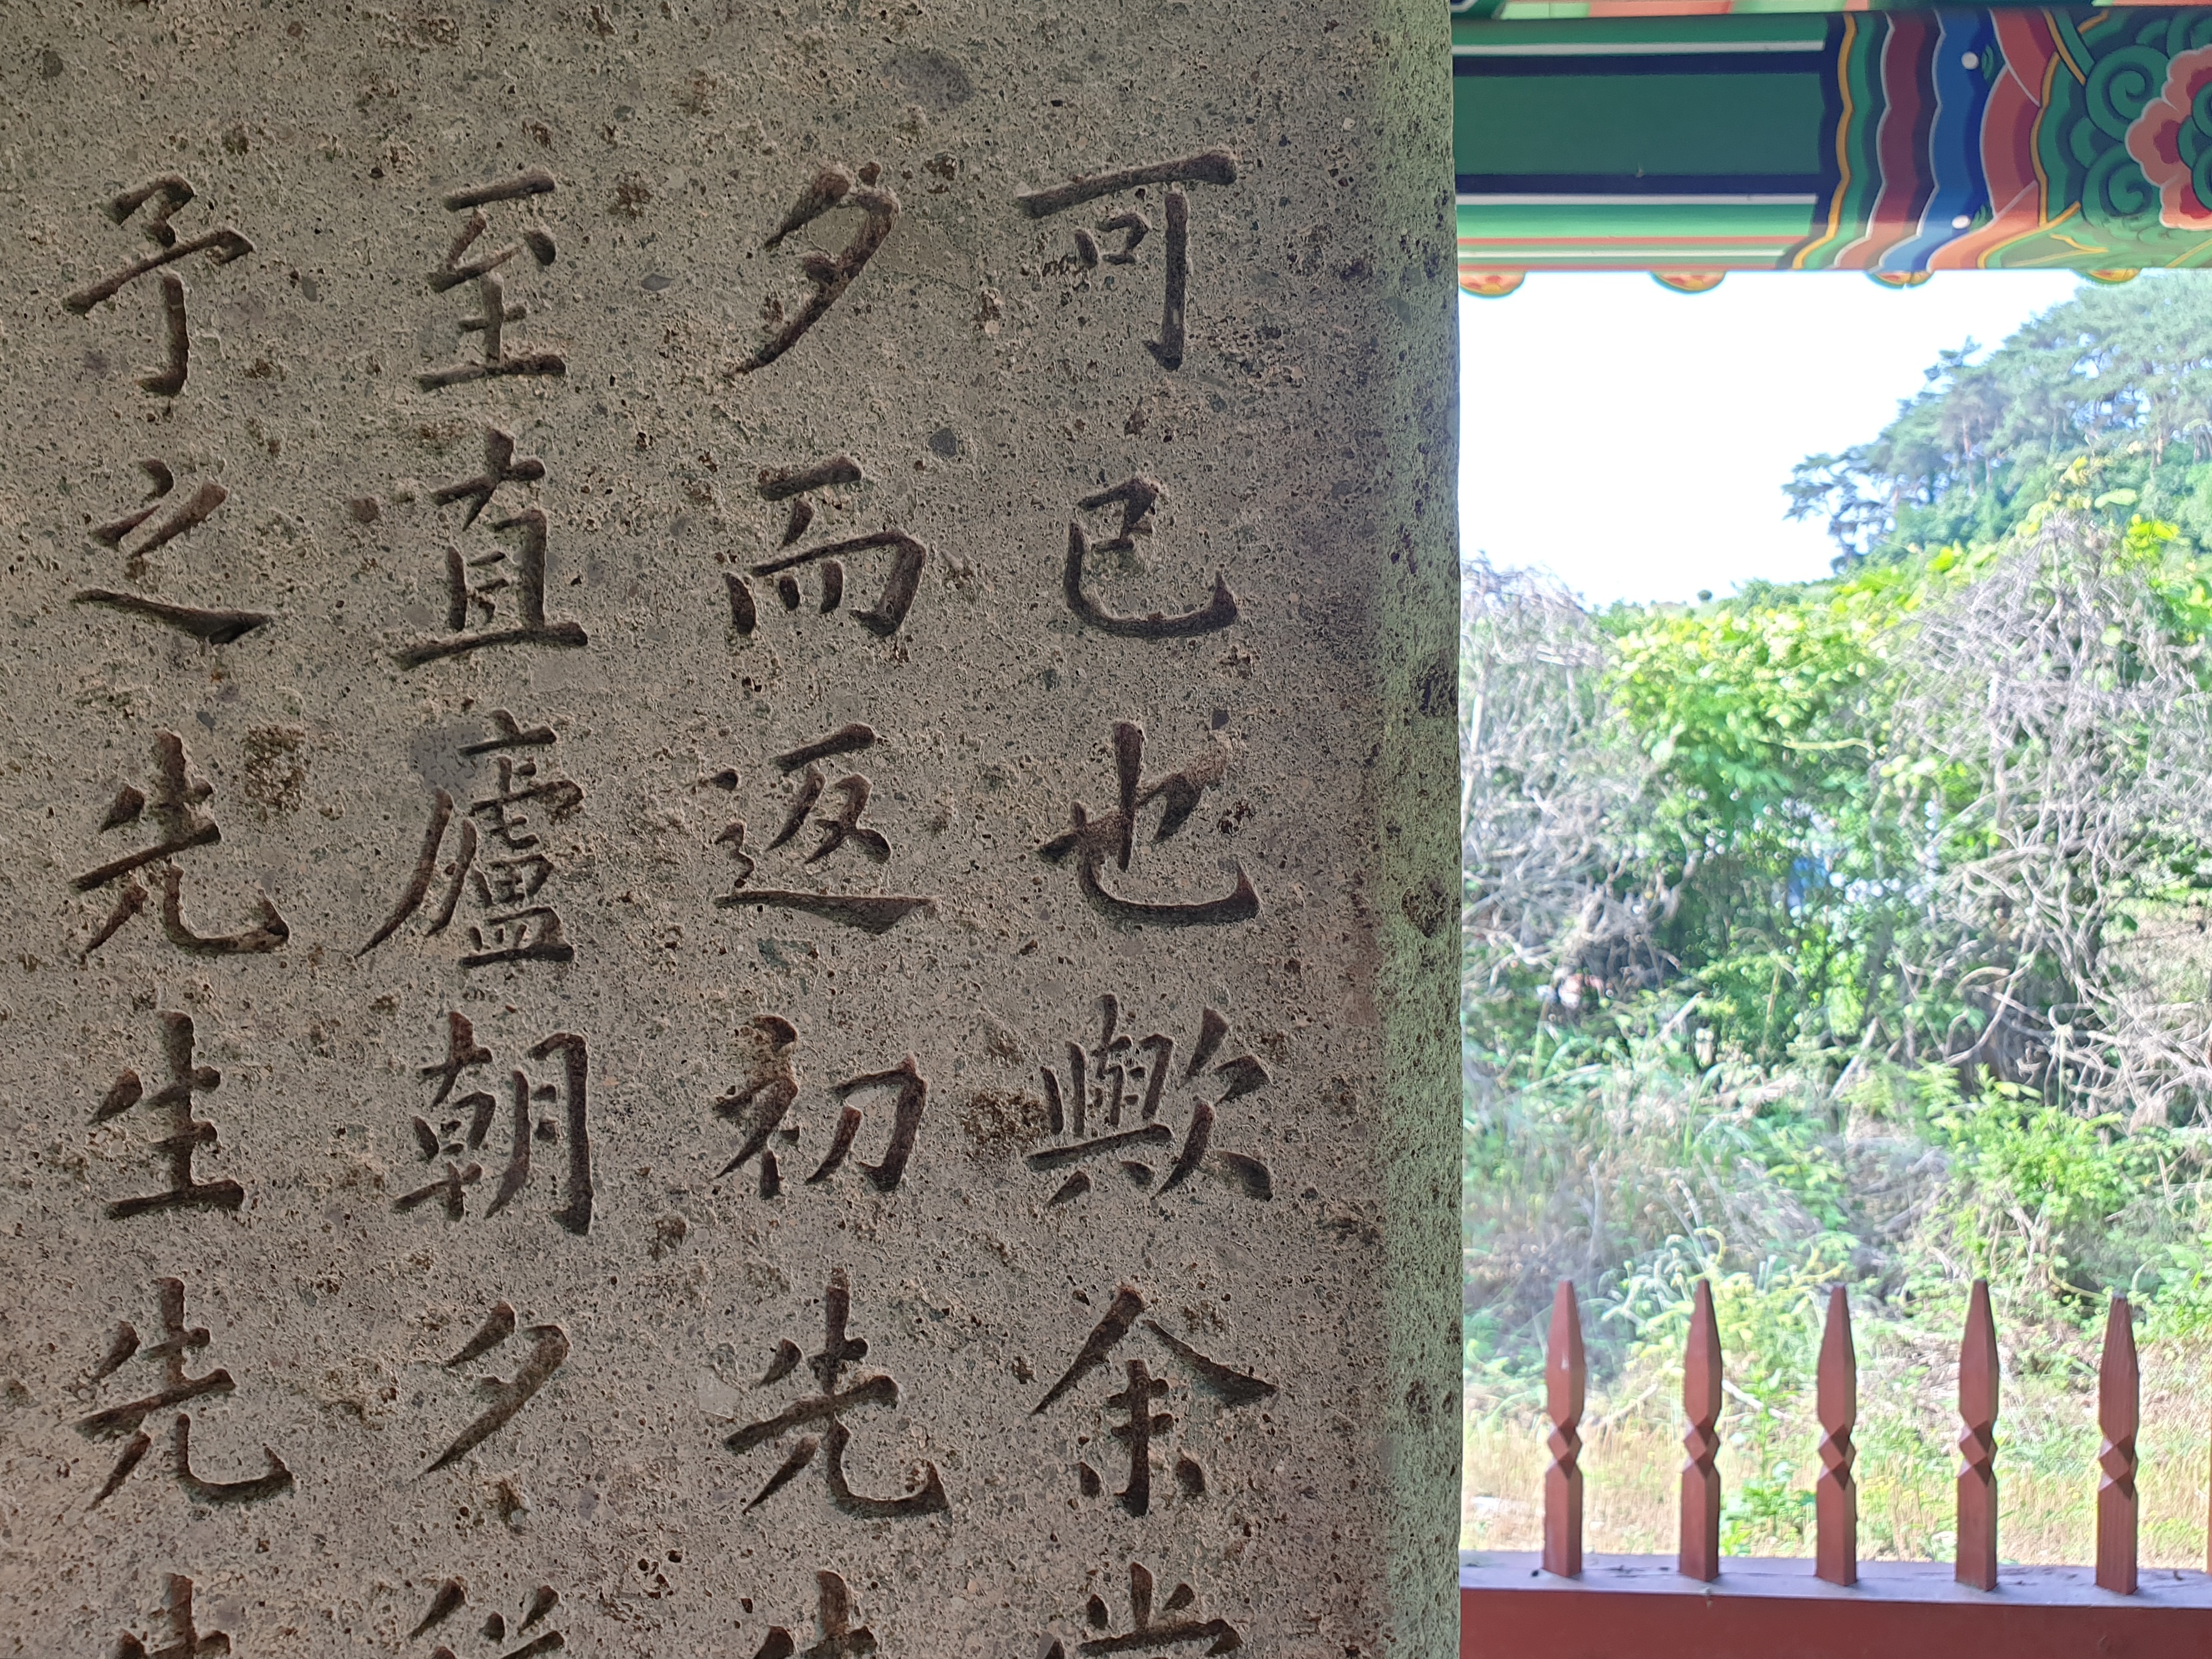 可已也歟余嘗
夕而返初先生
至直廬朝夕從
予之先生先生